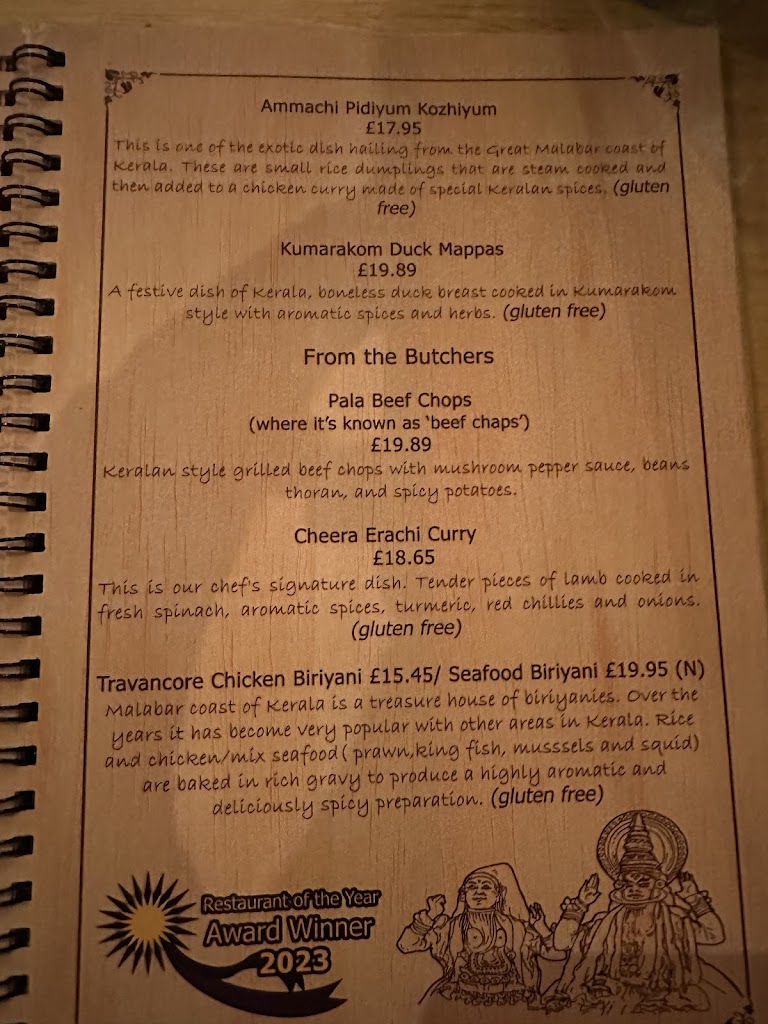 Ammachi Pidiyum Kozhiyum
£17.95
This is one of the exotic dish hailing from the Great Malabar coast of
Kerala. These are small rice dumplings that are steam cooked and
then added to a chicken curry made of special Keralan spices. (gluten
free)
Kumarakom Duck Mappas
£19.89
A festive dish of Kerala, boneless duck breast cooked in Kumarakom
style with aromatic spices and herbs. (gluten free)
From the Butchers
Pala Beef Chops
(where it's known as 'beef chaps')
£19.89
Keralan style grilled beef chops with mushroom pepper sauce, beans
thoran, and spicy potatoes.
Cheera Erachi Curry
£18.65
This is our chef's signature dish. Tender pieces of lamb cooked in
fresh spinach, aromatic spices, turmeric, red chillies and onions.
(gluten free)
Travancore Chicken Biriyani £15.45/ Seafood Biriyani £19.95 (N)
Malabar coast of Kerala is a treasure house of biriyanies. Over the
years it has become very popular with other areas in Kerala. Rice
and chicken/mix seafood( prawn,king fish, musssels and squid)
are baked in rich gravy to produce a highly aromatic and
deliciously spicy preparation. (gluten free)
Restaurant of the Year
Award Winner
2023